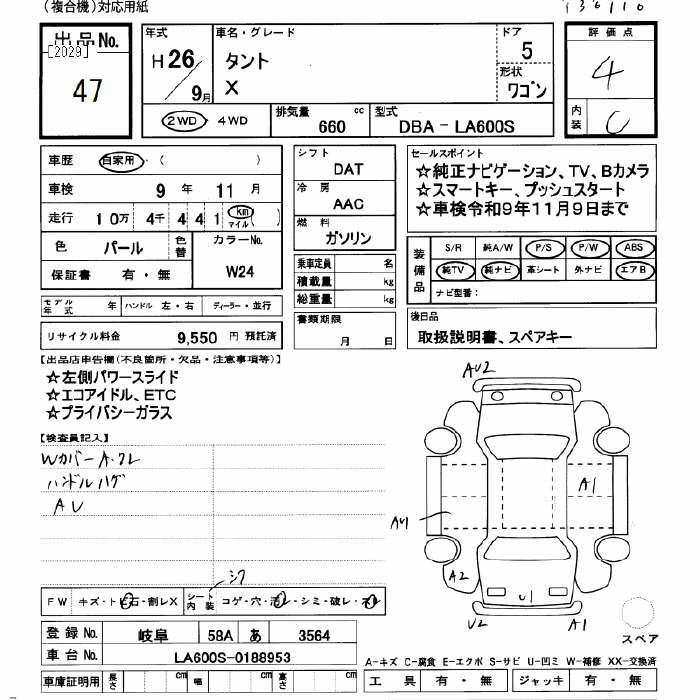 (複合機)対応用紙
136110
出品No.
[2029]
47
年式
H26/9月
車名・グレード
タント
X
ドア
5
形状
ワゴン
評価点
4
内装
C
2WD ・ 4WD
排気量 cc
660
型式
DBA-LA600S
車歴 自家用・( )
車検 9年 11月
走行 10万 4千 4 4 1 km マイル( )
色 パール 色替
カラーNo.
W24
保証書 有・無
シフト
DAT
冷房
AAC
燃料
ガソリン
乗車定員 名
積載量 kg
総重量 kg
セールスポイント
☆純正ナビゲーション、TV、Bカメラ
☆スマートキー、プッシュスタート
☆車検令和9年11月9日まで
装備品
S/R 純A/W P/S P/W ABS
純TV 純ナビ 革シート 外ナビ エアB
ナビ型番:
モデル年式 年 ハンドル 左・右 ディーラー・並行
リサイクル料金 9,550 円 預託済
書類期限
月 日
後日品
取扱説明書、スペアキー
【出品店申告欄(不良箇所・欠品・注意事項等)】
☆左側パワースライド
☆エコアイドル、ETC
☆プライバシーガラス
【検査員記入】
Wカバー A・ワレ
ハンドルハゲ
AU
AU2
A1
AU1
A2
U1
U2
A1
スペア
シワ
FW キズ・トビ石・割レX シート内装 コゲ・穴・汚レ・シミ・破レ・スレ
登録No. 岐阜 58A あ 3564
車台No. LA600S-0188953
車庫証明用 長さ cm 幅 cm 高さ cm
A-キズ C-腐食 E-エクボ S-サビ U-凹ミ W-補修 XX-交換済
工具 有・無 ジャッキ 有・無